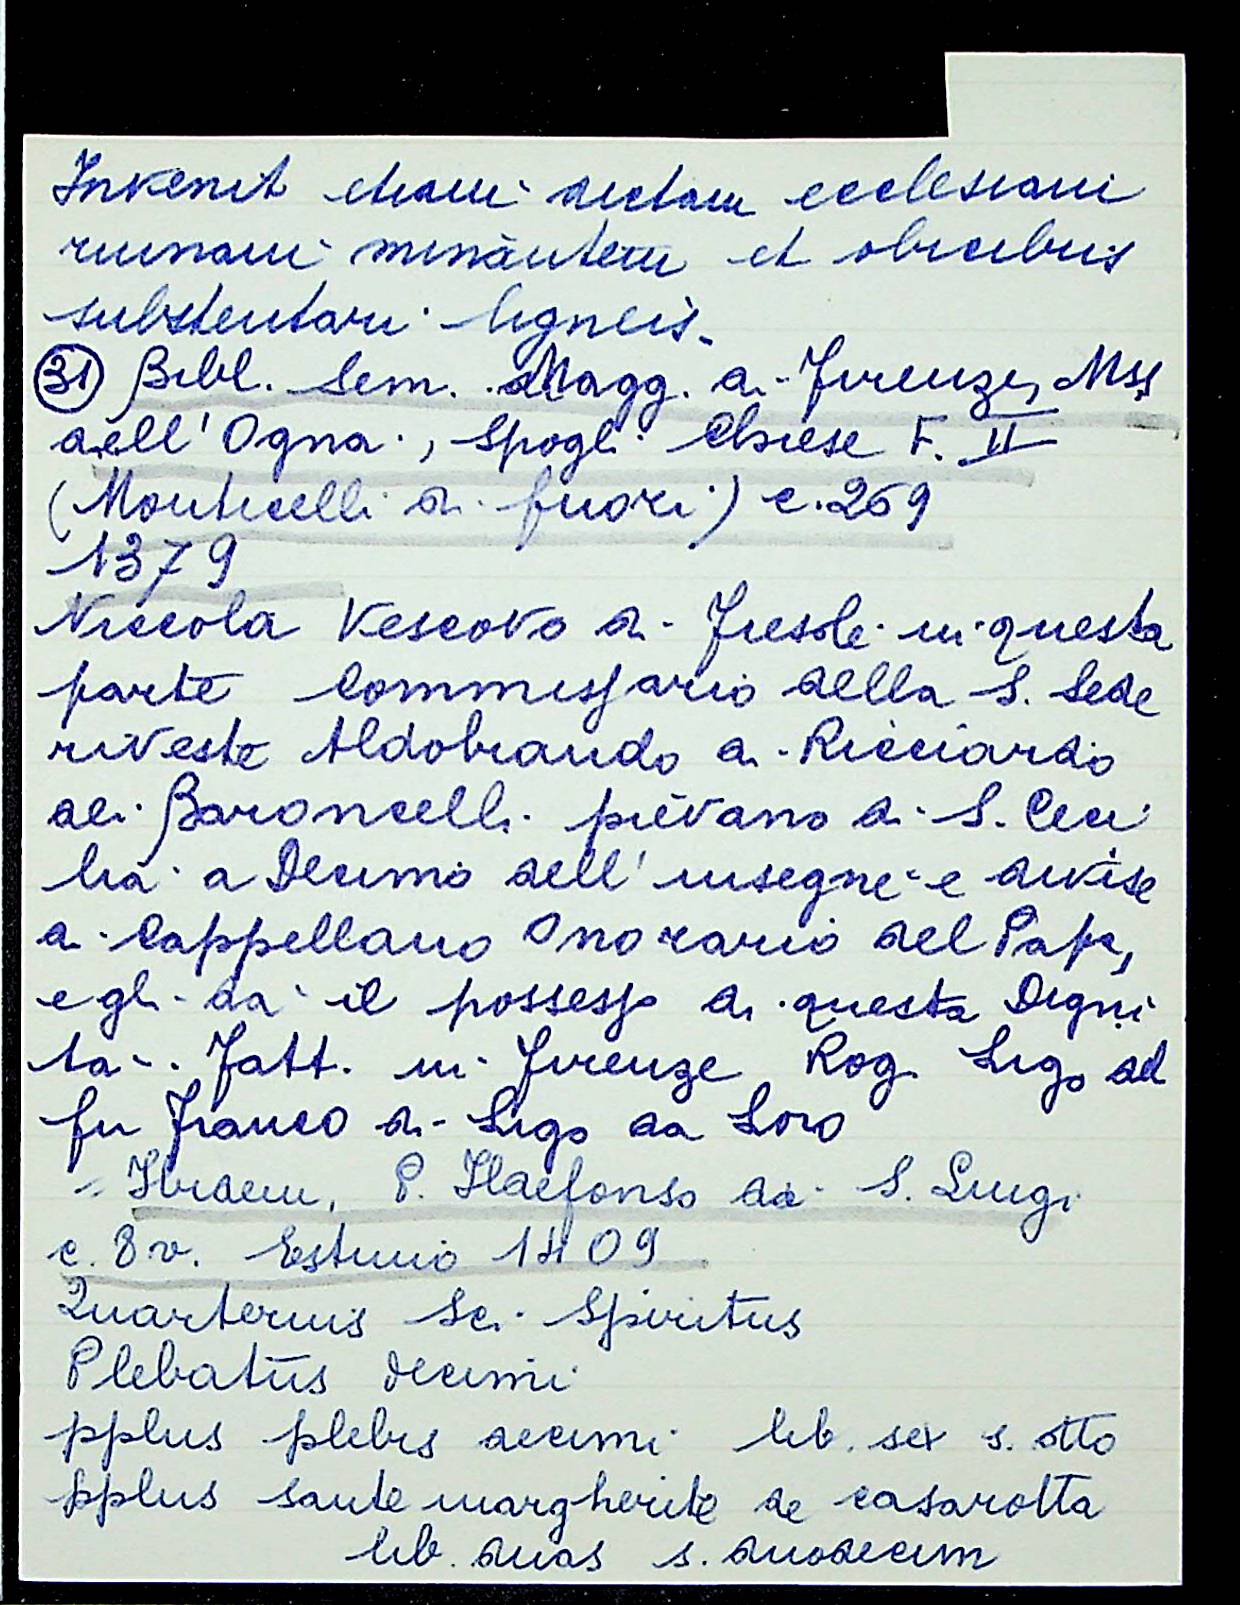 Invenit etiam dictam ecclesiam
ruinam minantem et obicibus
substentari ligneis.
31 Bibl. Sem. Magg. di Firenze, Mss
dell'Ogna, Spogli Chiese F. II
(Monticelli di fuori) c. 269
1379
Niccola Vescovo di Fiesole in questa
parte Commissario della S. Sede
riveste Aldobrando di Ricciardo
dei Baroncelli pievano di S. Ceci
lia a Decimo dell'insegne e divise
di Cappellano Onorario del Papa,
e gli dà il possesso di questa Digni
tà. Fatt. in Firenze Rog. Ligo del
fu Franco di Ligo da Loro
Ibidem, P. Ildefonso da S. Luigi
c. 8v. Estimo 1409
Quarterius Sci Spiritus
Plebatus decimi
pplus plebis decimi lib. sex s. otto
pplus sante margherite de casarotta
lib. duas s. duodecim